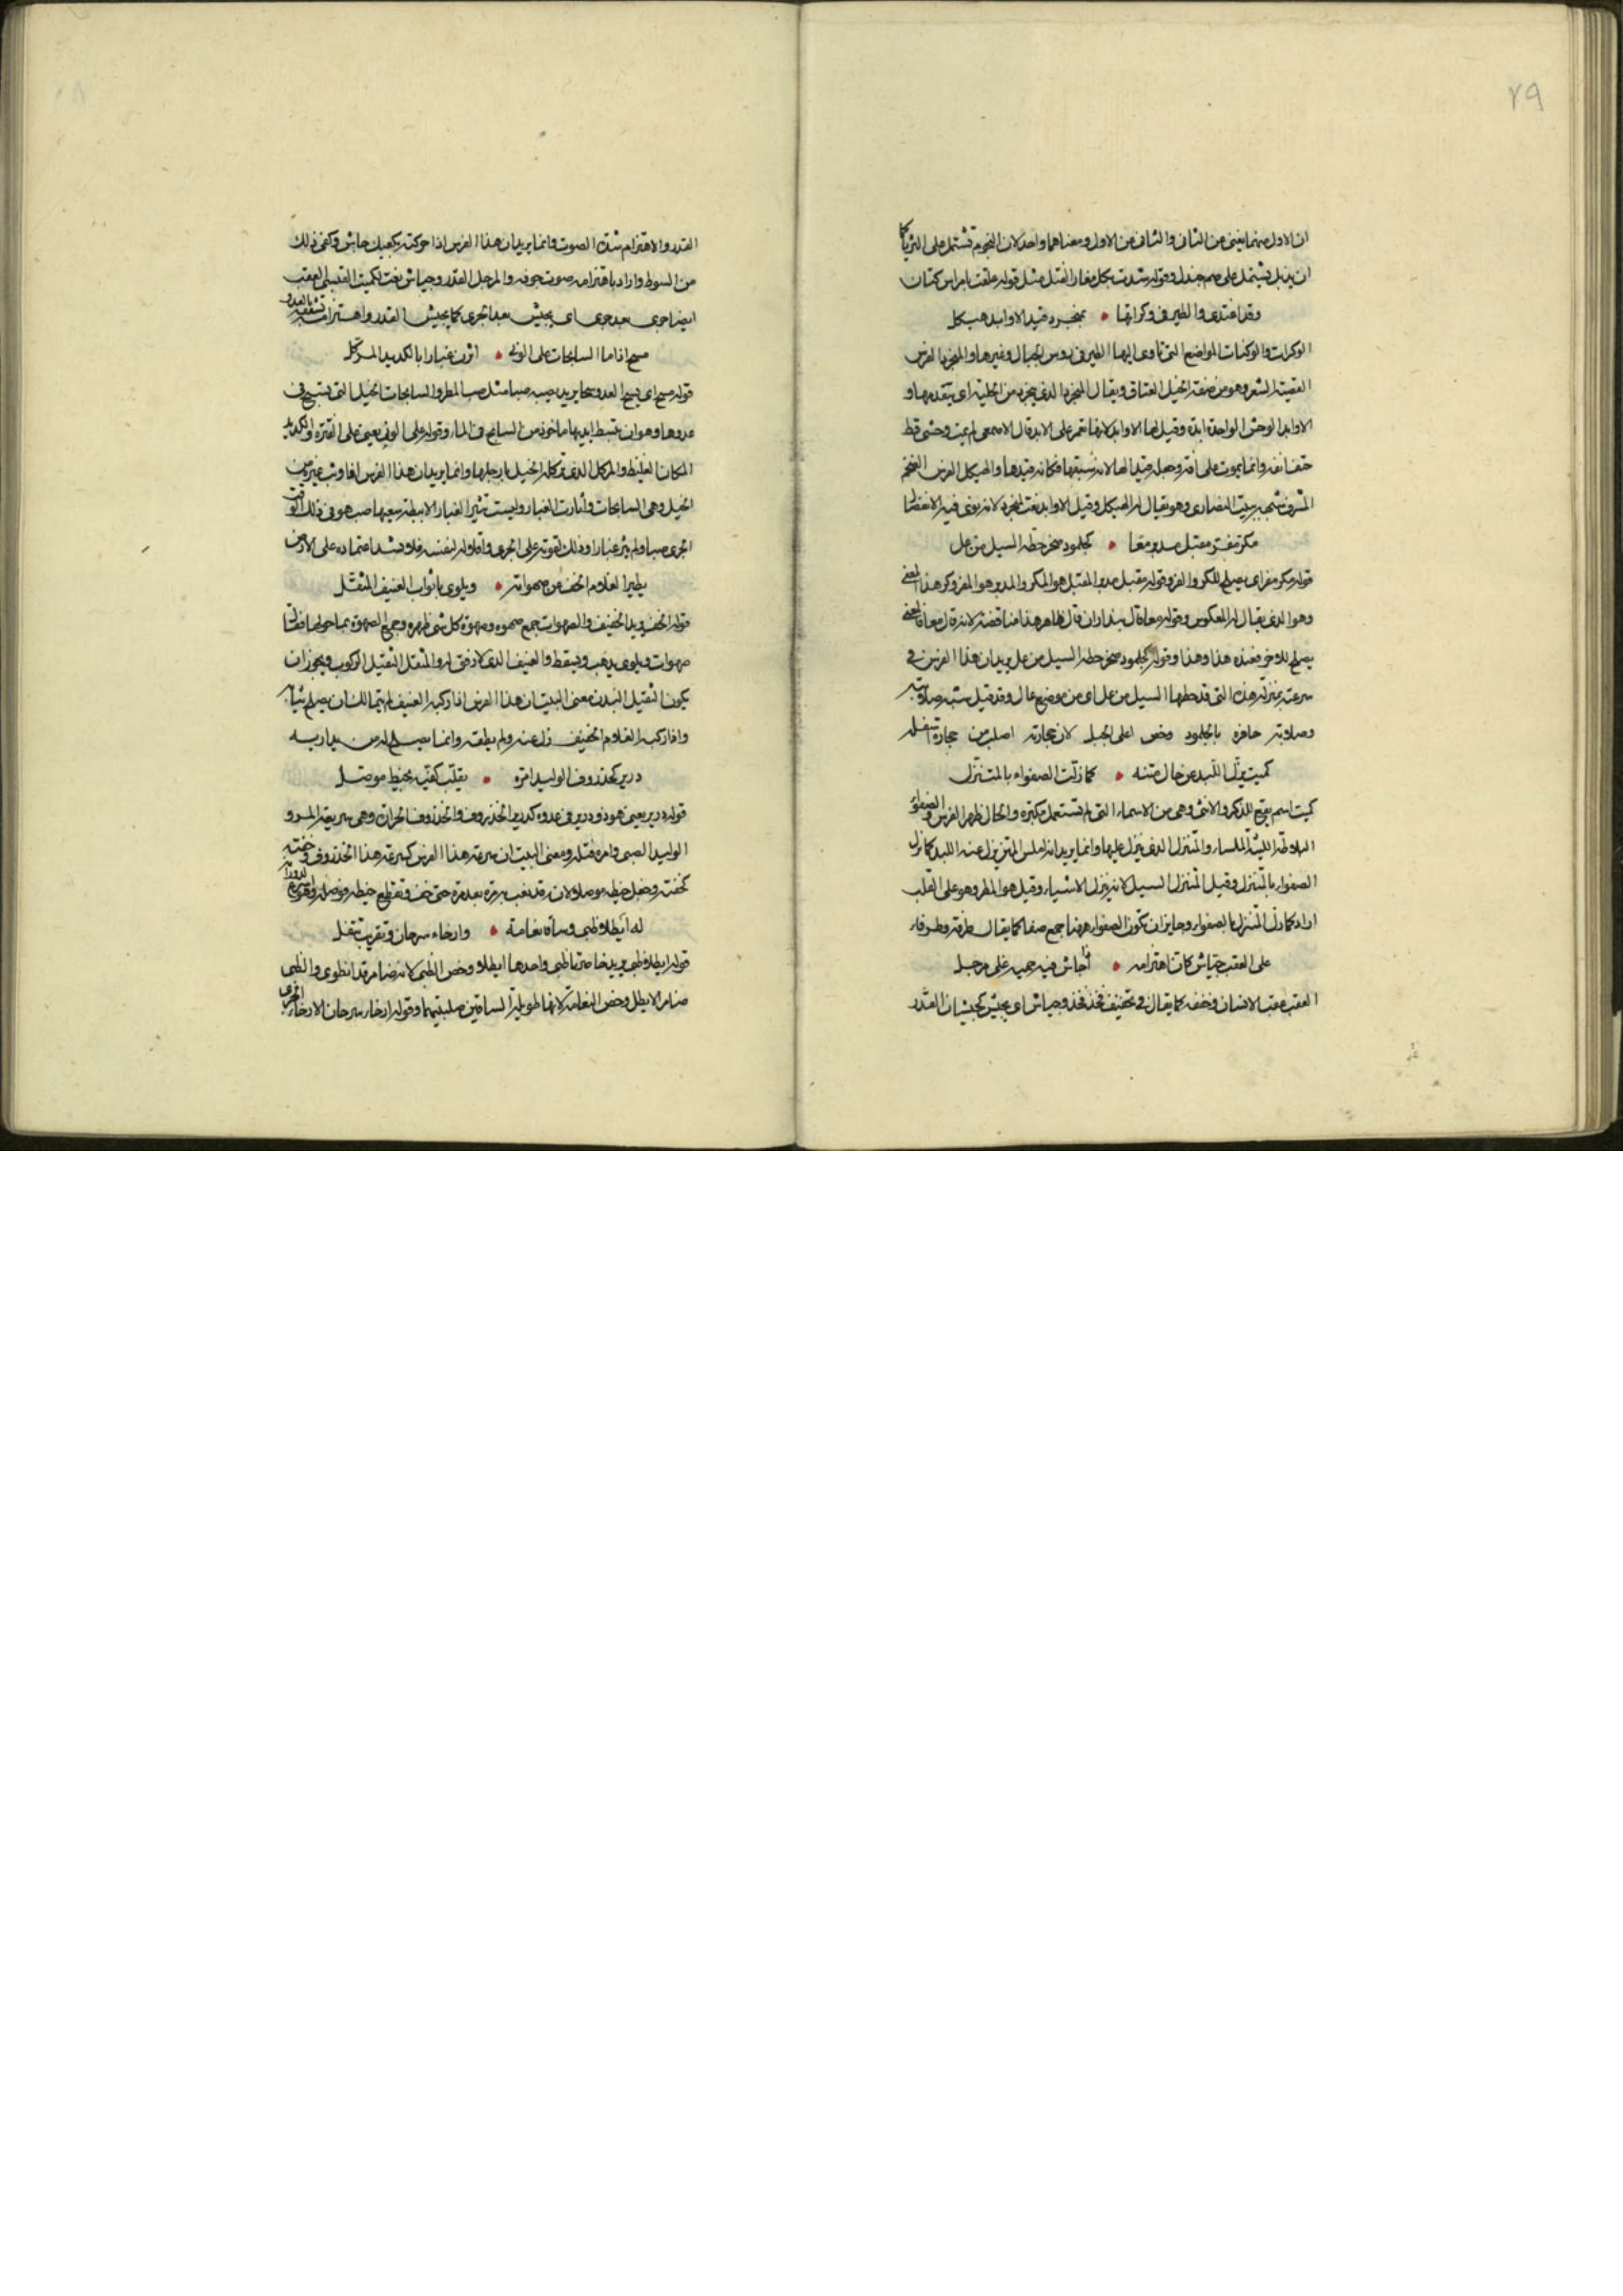 ٢٩
ان الاول منهما يغنى عن الثانى والثانى عن الاول ومعناهما واحد لان النجوم تشتمل على الثريا كما
ان يذبل يشتمل على صم جندل وقوله شدت بكل مغار الفتل مثل قوله علقت بامراس كتان
وقد اغتدى والطير فى وكراتها • بمنجرد قيد الاوابد هيكل
الوكرات والوكنات المواضع التى تاوى اليها الطير فى روس الجبال وغيرها والمنجرد الفرس
القصير الشعر وهو من صفة الخيل العتاق ويقال المنجرد الذى ينجرد من الحلية اى يتقدمها و
الاوابد الوحش الواحدة ابدة وقيل لها الاوابد لانها تعمر على الابد قال الاصمعى لم يمت وحشى قط
حتف انفه وانما يموت على آفة وجعله قيدا لها لانه يسبقها فكانه قيدها والهيكل الفرس الضخم
المشرف شبه ببيت النصارى وهو يقال له الهيكل وقيل الاوابد نعت لمنجرد لانه نوى فيه الانفصال
مكر مفر مقبل مدبر معا • كجلمود صخر حطه السيل من عل
قوله مكر مفر اى يصلح للكر والفر وقوله مقبل مدبر المقبل هو المكر والمدبر هو المفر وكرر هذا المعنى
وهو الذى يقال له المعكوس وقوله معا قال بندار ان قال ظاهر هذا مناقضة لانه قال معا فالمعنى
يصلح للاخر فعنده هذا وهذا وقوله كجلمود صخر حطه السيل من عل يريد ان هذا الفرس فى
سرعته بمنزلة هذه التى قد حطها السيل من عل اى من موضع عال وقد قيل شبه صلابته
وصلابة حافره بالجلمود وخص اعلى الجبل لان حجارته اصلب من حجارة اسفله
كميت يزل اللبد عن حال متنه • كما زلت الصفواء بالمتنزل
كميت اسم يقع للذكر والانثى وهى من الاسماء التى لم تستعمل مكبرة والحال ظهر الفرس والصفواء
البلاطة اللينة الملساء والمتنزل الذى ينزل عليها وانما يريد انه املس المتن يزل عنه اللبد كما تزل
الصفواء بالمتنزل وقيل المتنزل السيل لانه ينزل الاشياء وقيل هو المطر وهو على القلب
اراد كما زل المتنزل بالصفواء وجايز ان تكون الصفواء ههنا جمع صفا كما يقال طرفة وطرفاء
على العقب جياش كان اهتزامه • اذا جاش فيه حميه غلى مرجل
العقب عقب الانسان وخففه كما يقال فى تخفيف فخذ فخذ وجياش اى يجيش كجيشان القدر
القدر والاهتزام شدة الصوت وانما يريد ان هذا الفرس اذا حركته بكعبك جاش وكفى ذلك
من السوط واراد باهتزامه صوت جوفه والمرجل القدر وجياش نعت لكميت القتبى العقب
ايضا جرى بعد جرى اى يجيش بعد الجرى كما يجيش القدر واهتزامه تشققه بالعدو
مسح اذا ما السابحات على الونى • اثرن غبارا بالكديد المركل
قوله مسح اى يسح العدو سحا يريد يصبه صبا مثل صب المطر والسابحات الخيل التى تسبح فى
عدوها وهو ان تبسط ايديها ماخوذ من السابح فى الماء وقوله على الونى يعنى على الفترة والكديد
المكان الغليظ والمركل الذى تركله الخيل بارجلها وانما يريد ان هذا الفرس اذا وثب غيره من
الخيل وهى السابحات واثارت الغبار وليست تثير الغبار الا ببطء سعيها صب هو فى ذلك الوقت
الجرى صبا ولم يثر غبارا وذلك لقوته على الجرى واقلاله لنفسه فلا يشد اعتماده على الارض
يطير الغلام الخف عن صهواته • ويلوى باثواب العنيف المثقل
قوله الخف يريد الخفيف والصهوات جمع صهوه وصهوة كل شى ظهره وجمع الصهوة بما حولها فقال
صهوات ويلوى يذهب ويسقط والعنيف الذى لا رفق له والمثقل الثقيل الركوب ويجوز ان
يكون الثقيل البدن معنى البيت ان هذا الفرس اذا ركبه العنيف لم يتمالك ان يصلح ثيابه
واذا ركبه الغلام الخفيف زل عنه ولم يطقه وانما يصلح له من يداريه
درير كخذروف الوليد امره • يقلب كفيه بخيط موصل
قوله درير يعنى هو ذو درير فى عدوه كدرير الخذروف والخذروف الخرارة وهى سريعة المر و
الوليد الصبى وامره فتله ومعنى البيت ان سرعة هذا الفرس كسرعة هذا الخذروف وخفته
كخفته وجعل خيطه موصلا لانه قد لعب به مرة بعد مرة حتى خف وتقطع خيطه فوصله وهو اسرع لدورانه
له ايطلا ظبى وساقا نعامة • وارخاء سرحان وتقريب تتفل
قوله ايطلا ظبى يريد خاصرتا ظبى واحدها ايطل وخص الظبى لانه ضامر قد انطوى والظبى
ضامر الايطل وخص النعامة لانها طويلة الساقين صلبتيهما وقوله ارخاء سرحان الارخاء الجرى